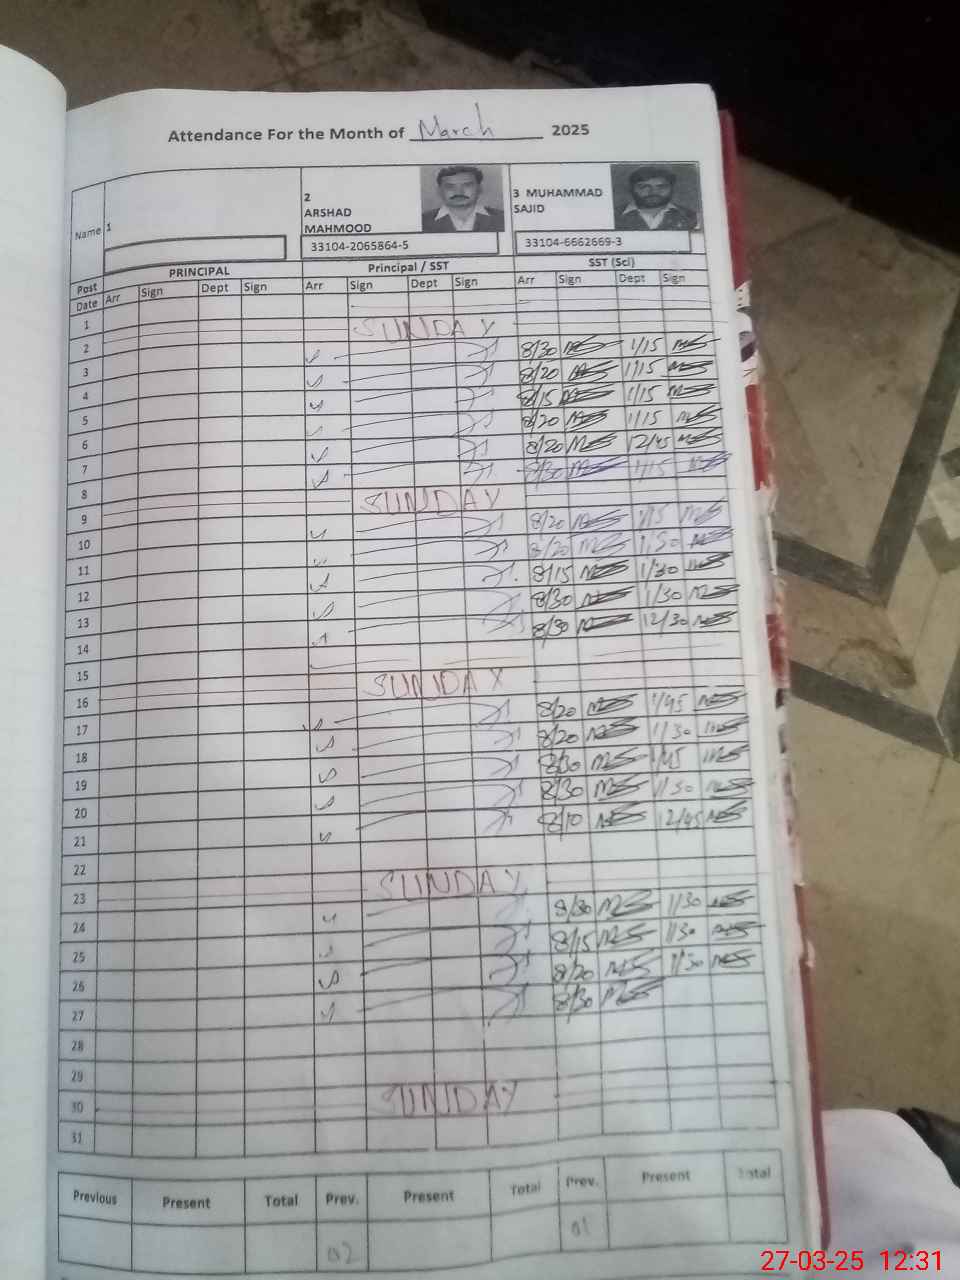 Attendance For the Month of March 2025
Name 1 2 ARSHAD MAHMOOD 3 MUHAMMAD SAJID
33104-2065864-5 33104-6662669-3
Post PRINCIPAL Principal / SST SST (Sci)
Date Arr Sign Dept Sign Arr Sign Dept Sign Arr Sign Dept Sign
1
2 SUNDAY
3 8/30 1/15
4 8/20 1/15
5 8/15 1/15
6 8/20 1/15
7 8/20 12/45
8 8/30 1/15
9 SUNDAY
10 8/20 1/15
11 8/20 1/30
12 8/15 1/30
13 8/30 1/30
14 8/30 12/30
15
16 SUNDAY
17 8/20 1/45
18 8/20 1/30
19 8/30 1/45
20 8/30 1/30
21 8/10 12/45
22
23 SUNDAY
24 8/30 1/30
25 8/15 1/30
26 8/20 1/30
27 8/30
28
29
30 SUNDAY
31
Previous Present Total Prev. Present Total Prev. Present Total
02 01
27-03-25 12:31